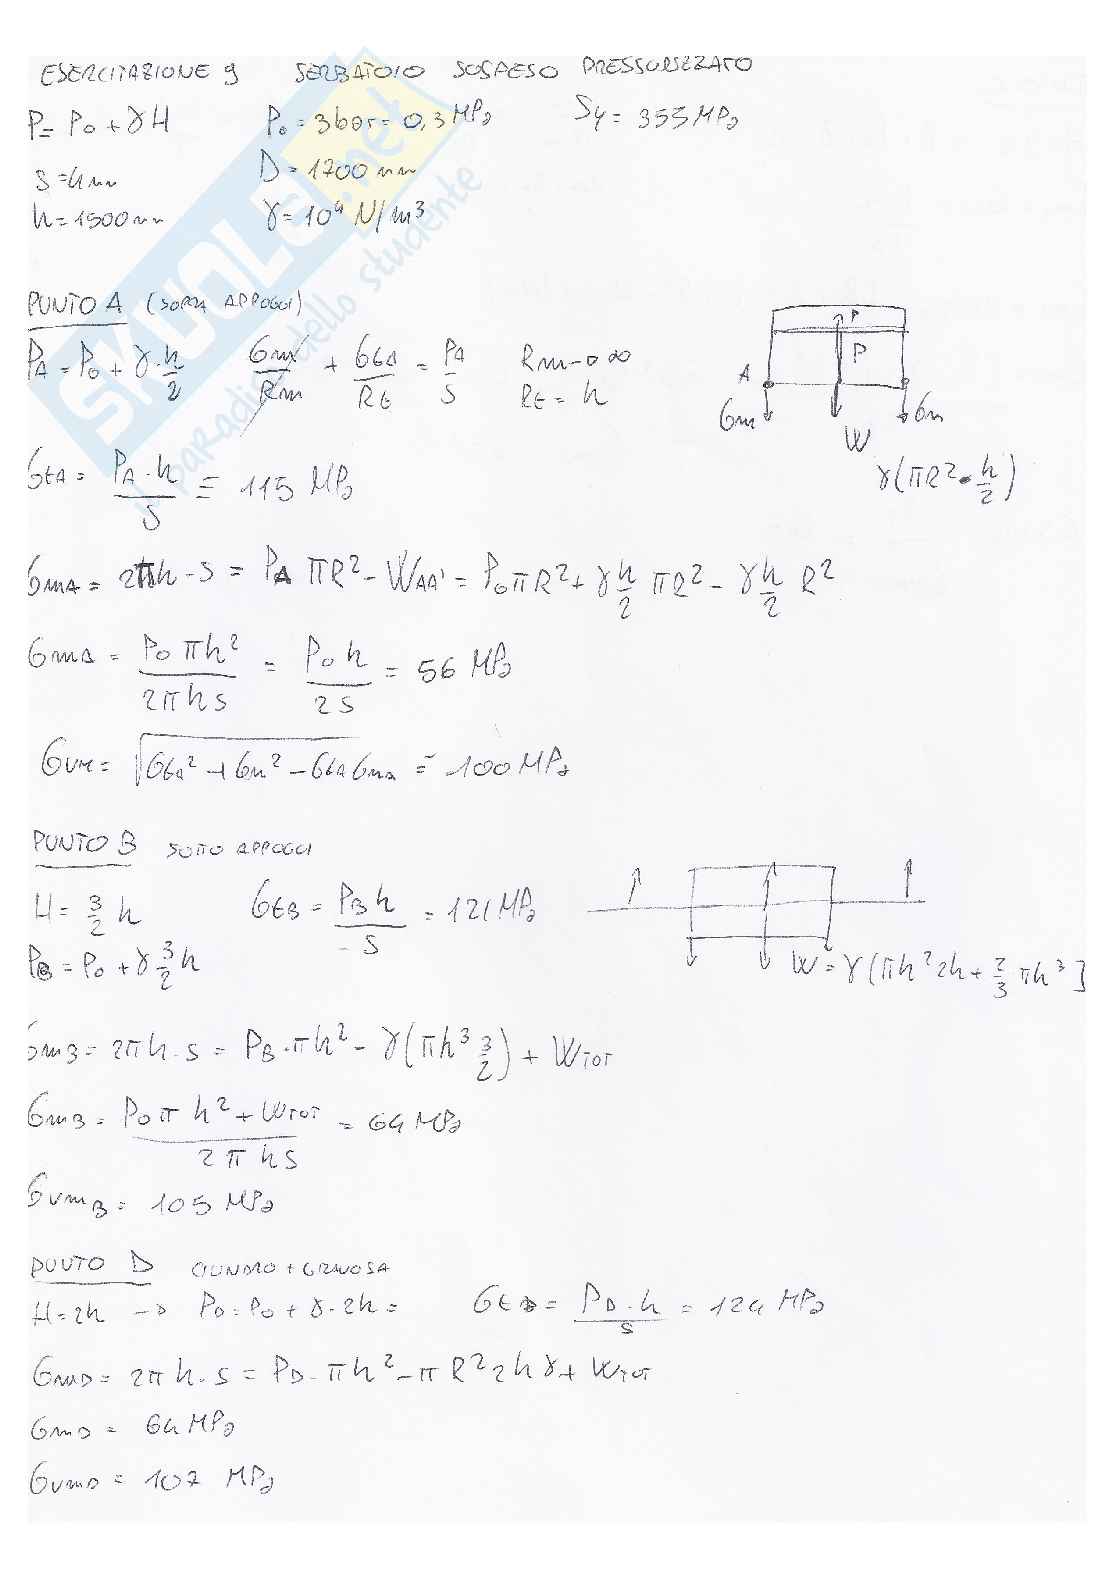 ESERCITAZIONE 9 SERBATOIO SOSPESO PRESSURIZZATO
P = P0 + γH P0 = 3bar = 0,3 MPa Sy = 355 MPa
s = 4mm D = 1700 mm
h = 1500mm γ = 10⁴ N/m³
SKUOLA.net
il paradiso dello studente
PUNTO A (SOPRA APPOGGI)
PA = P0 + γ·h/2 σm/Rm + σtA/Rt = PA/s Rm → ∞
Rt = h
A P P
σm W σm
γ(πR²·h/2)
σtA = PA·h/s = 115 MPa
σmA = 2πh·s = PA πR² - WAA' = P0πR² + γh/2 πR² - γh/2 R²
σmA = P0πh²/2πhs = P0h/2s = 56 MPa
σVM = √σtA² + σm² - σtAσmA = 100 MPa
PUNTO B SOTTO APPOGGI
H = 3/2 h σtB = PBh/s = 121 MPa
PB = P0 + γ 3/2 h
W = γ(πh²2h + 2/3 πh³]
σmB = 2πh·s = PB·πh² - γ(πh³ 3/2) + WTOT
σmB = P0πh² + WTOT/2πhs = 64 MPa
σVMB = 105 MPa
PUNTO D CILINDRO +
H = 2h → PD = P0 + γ·2h = σtD = PD·h/s = 124 MPa
σmD = 2πh·s = PD·πh² - πR²2hγ + WTOT
σmD = 64 MPa
σVMD = 107 MPa